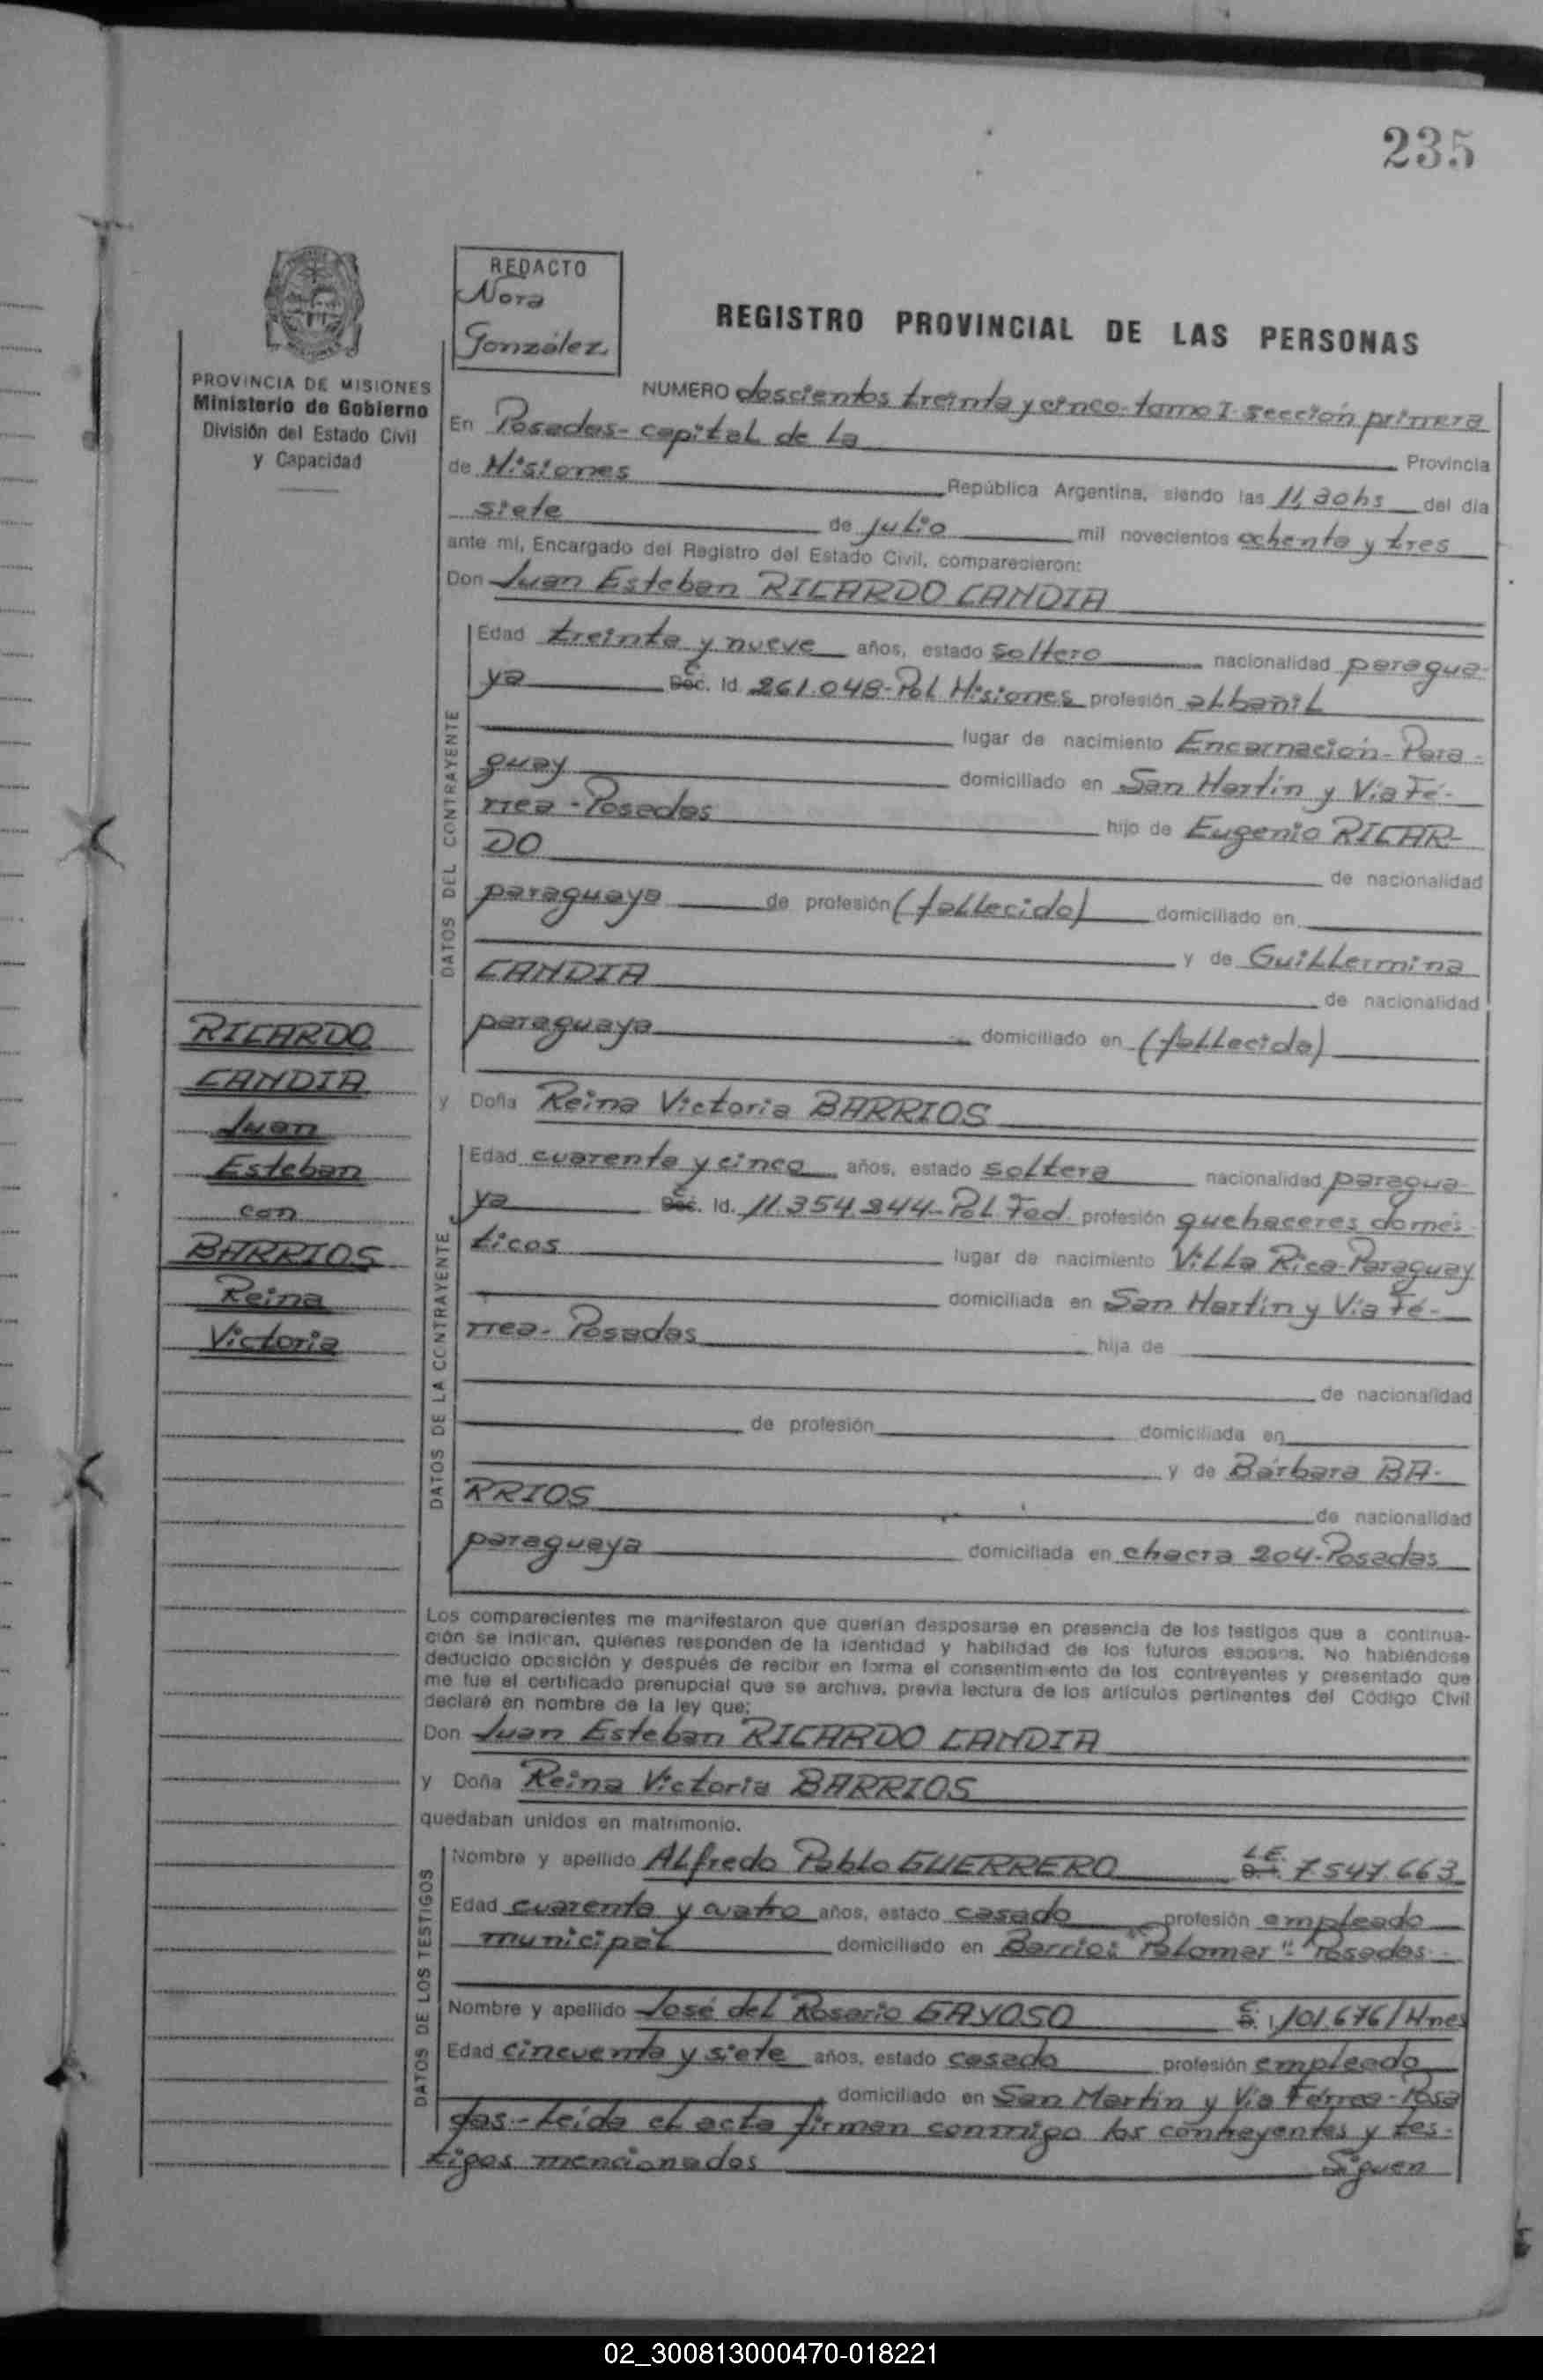 235
REDACTO
Nora
González
REGISTRO PROVINCIAL DE LAS PERSONAS
PROVINCIA DE MISIONES
Ministerio de Gobierno
División del Estado Civil
y Capacidad
NUMERO doscientos treinta y cinco-tomo I-sección primera
En Posadas-capital de la Provincia
de Misiones República Argentina, siendo las 11,30hs del día
siete de julio mil novecientos ochenta y tres
ante mí, Encargado del Registro del Estado Civil, comparecieron:
Don Juan Esteban RICARDO CANDIA
DATOS DEL CONTRAYENTE
Edad treinta y nueve años, estado soltero nacionalidad paragua-
ya C. Id. 261.048-Pol. Misiones profesión albañil
lugar de nacimiento Encarnación-Para-
guay domiciliado en San Martín y Vía Fé-
rrea-Posadas hijo de Eugenio RICAR-
DO de nacionalidad
paraguaya de profesión (fallecido) domiciliado en
y de Guillermina
CANDIA de nacionalidad
paraguaya domiciliado en (fallecida)
RICARDO
CANDIA
Juan
Esteban
con
BARRIOS
Reina
Victoria
y Doña Reina Victoria BARRIOS
DATOS DE LA CONTRAYENTE
Edad cuarenta y cinco años, estado soltera nacionalidad paragua-
ya C. Id. 11.354.844-Pol. Fed. profesión quehaceres domés-
ticos lugar de nacimiento Villa Rica-Paraguay
domiciliada en San Martín y Vía Fé-
rrea-Posadas hija de
de nacionalidad
de profesión domiciliada en
y de Bárbara BA-
RRIOS de nacionalidad
paraguaya domiciliada en chacra 204-Posadas
Los comparecientes me manifestaron que querían desposarse en presencia de los testigos que a continua-
ción se indican, quienes responden de la identidad y habilidad de los futuros esposos. No habiéndose
deducido oposición y después de recibir en forma el consentimiento de los contrayentes y presentado que
me fue el certificado prenupcial que se archiva, previa lectura de los artículos pertinentes del Código Civil
declaré en nombre de la ley que:
Don Juan Esteban RICARDO CANDIA
y Doña Reina Victoria BARRIOS
quedaban unidos en matrimonio.
DATOS DE LOS TESTIGOS
Nombre y apellido Alfredo Pablo GUERRERO L.E. 7.547.663
Edad cuarenta y cuatro años, estado casado profesión empleado
municipal domiciliado en Barrio: "Palomar"-Posadas-
Nombre y apellido José del Rosario GAYOSO C. I. 101.676/Mnes
Edad cincuenta y siete años, estado casado profesión empleado
domiciliado en San Martín y Vía Férrea-Posa
das-Leída el acta firman conmigo los contrayentes y tes-
tigos mencionados Siguen
02_300813000470-018221